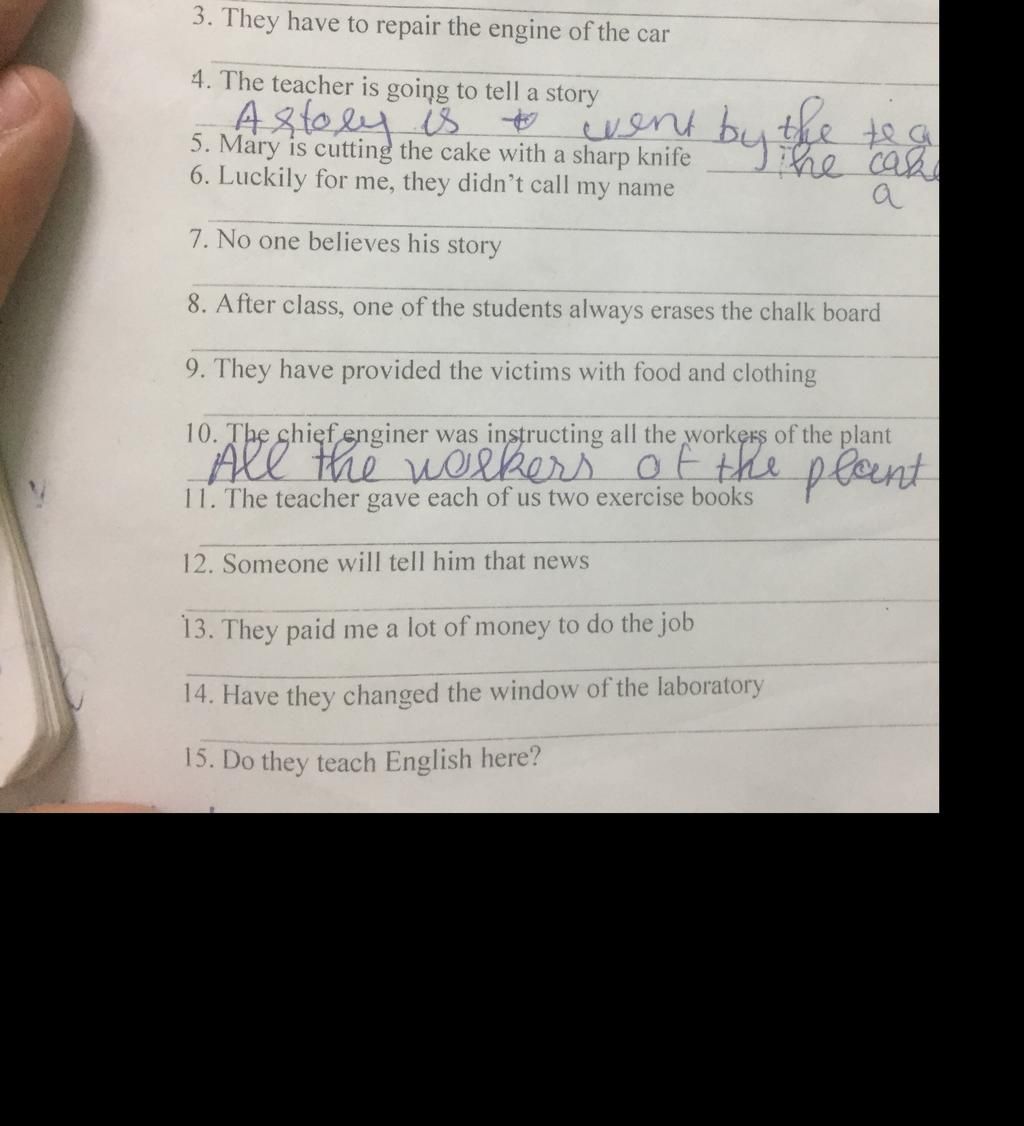 3. They have to repair the engine of the car
4. The teacher is going to tell a story
A story is to went by the tea
5. Mary is cutting the cake with a sharp knife The cake
a
6. Luckily for me, they didn't call my name
7. No one believes his story
8. After class, one of the students always erases the chalk board
9. They have provided the victims with food and clothing
10. The chief enginer was instructing all the workers of the plant
All the workers of the plant
11. The teacher gave each of us two exercise books
12. Someone will tell him that news
13. They paid me a lot of money to do the job
14. Have they changed the window of the laboratory
15. Do they teach English here?